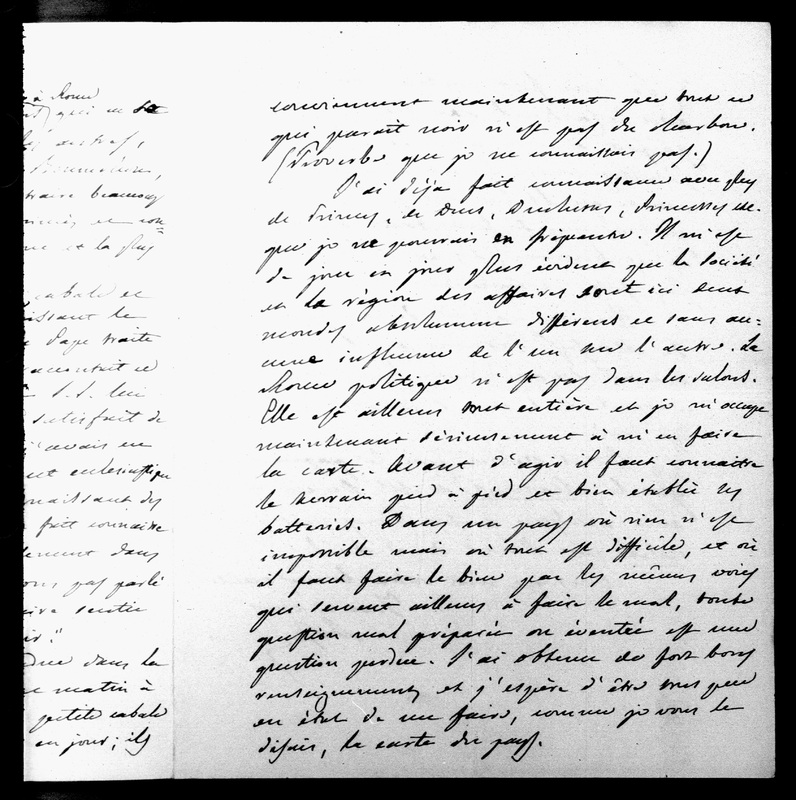 à Rome
qui ne se
les autres,
traire beaucoup
et la plus
cabale et
issant le
Pape traite
S. S. lui
satisfait de
j'avais en
ent ecclésiastique
onnaissant des
fait connaître
lement dans
ons pas parlé
sentir
dans la
matin à
petite cabale
en jour; ils
conviennent maintenant que tout ce
qui parait noir n'est pas du charbon.
(Proverbe que je ne connaissais pas.)
J'ai déja fait connaissance avec plus
de Princes, et Ducs, Duchesses, Princesses etc.
que je ne pourrais en fréquenter. Il m'est
de jour en jour plus évident que la société
et la région des affaires sont ici deux
mondes absolument différents et sans au-
cune influence de l'un sur l'autre. La
Rome politique n'est pas dans les salons.
Elle est ailleurs tout entière et je m'occupe
maintenant sérieusement à m'en faire
la carte. Avant d'agir il faut connaitre
le terrain pied à pied et bien établir ses
batteries. Dans un pays où rien n'est
impossible mais où tout est difficile, et où
il faut faire le bien par les mêmes voies
qui servent ailleurs à faire le mal, toute
question mal préparée ou éventée est une
question perdue. J'ai obtenu de fort bons
renseignements et j'espère d'être sous peu
en état de me faire, comme je vous le
disais, la carte du pays.